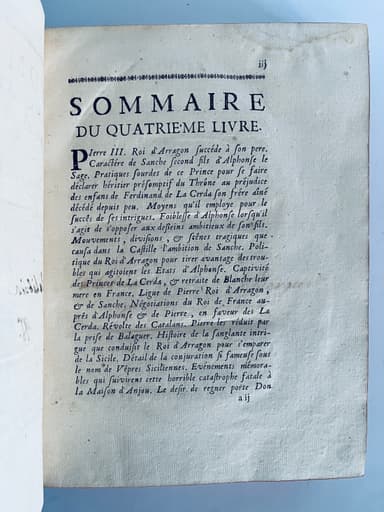 iij
SOMMAIRE
DU QUATRIEME LIVRE.
PIerre III. Roi d'Arragon succéde à son pere.
Caractére de Sanche second fils d'Alphonse le
Sage. Pratiques sourdes de ce Prince pour se faire
déclarer héritier présomptif du Thrône au préjudice
des enfans de Ferdinand de La Cerda son frére aîné
décédé depuis peu. Moyens qu'il employe pour le
succès de ses intrigues. Foiblesse d'Alphonse lorsqu'il
s'agit de s'opposer aux desseins ambitieux de son fils.
Mouvements, divisions, & scénes tragiques que
causa dans la Castille l'ambition de Sanche. Poli-
tique du Roi d'Arragon pour tirer avantage des trou-
bles qui agitoient les Etats d'Alphonse. Captivité
des Princes de La Cerda, & retraite de Blanche leur
mere en France. Ligue de Pierre Roi d'Arragon,
& de Sanche. Négotiations du Roi de France au-
près d'Alphonse & de Pierre, en faveur des La
Cerda. Révolte des Catalans. Pierre les réduit par
la prise de Balaguer. Histoire de la sanglante intri-
gue que conduisit le Roi d'Arragon pour s'emparer
de la Sicile. Détail de la conjuration si fameuse sous
le nom de Vêpres Siciliennes. Evénements mémora-
bles qui suivirent cette horrible catastrophe fatale à
la Maison d'Anjou. Le desir de regner porte Don
a ij